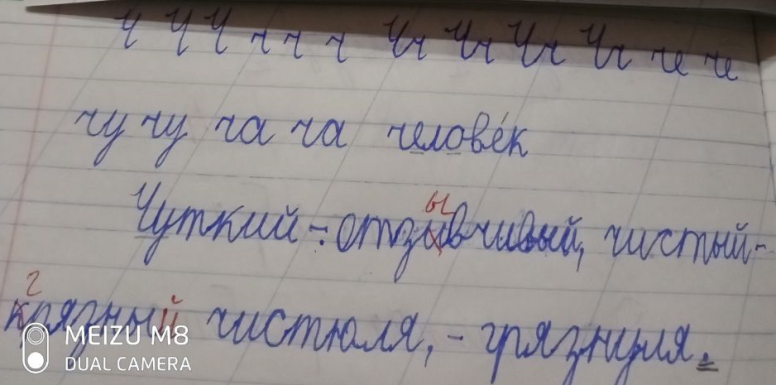 Ч Ч Ч ч ч ч Чч Чч Чч Чч че че
чу чу ча ча челове́к
Чуткий - отзывчивый, чистый-
г
крязный чистюля, - грязнуля.
MEIZU M8
DUAL CAMERA